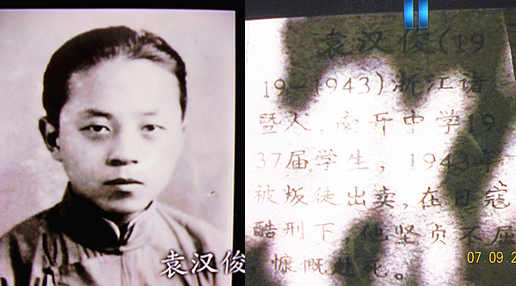 袁汉俊
袁汉俊(19
19-1943)浙江诸
暨人,南开中学19
37届学生,1943年
被叛徒出卖,在日寇
酷刑下,他坚贞不屈
慷慨赴死。
07.09.2